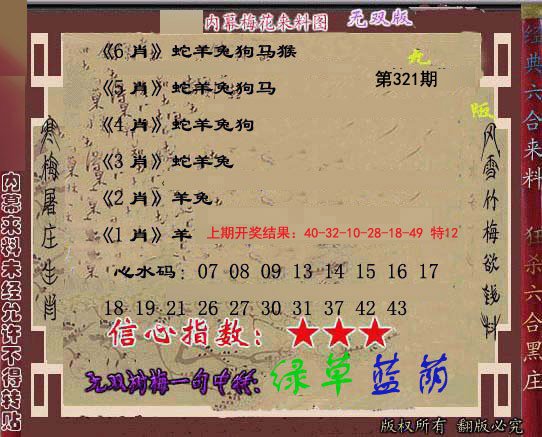 内幕梅花来料图 无双版
《6 肖》蛇羊兔狗马猴
第321期
《5 肖》蛇羊兔狗马
《4 肖》蛇羊兔狗
《3 肖》蛇羊兔
《2 肖》羊兔
《1 肖》羊
上期开奖结果：40-32-10-28-18-49 特12
心水码：07 08 09 13 14 15 16 17
18 19 21 26 27 30 31 37 42 43
信心指数：★★★
绿草蓝荫
版权所有 翻版必究
寒梅屠庄生肖
风雪竹梅欲钱料
内幕来料未经允许不得转贴
经典六合来料
狂杀六合黑庄